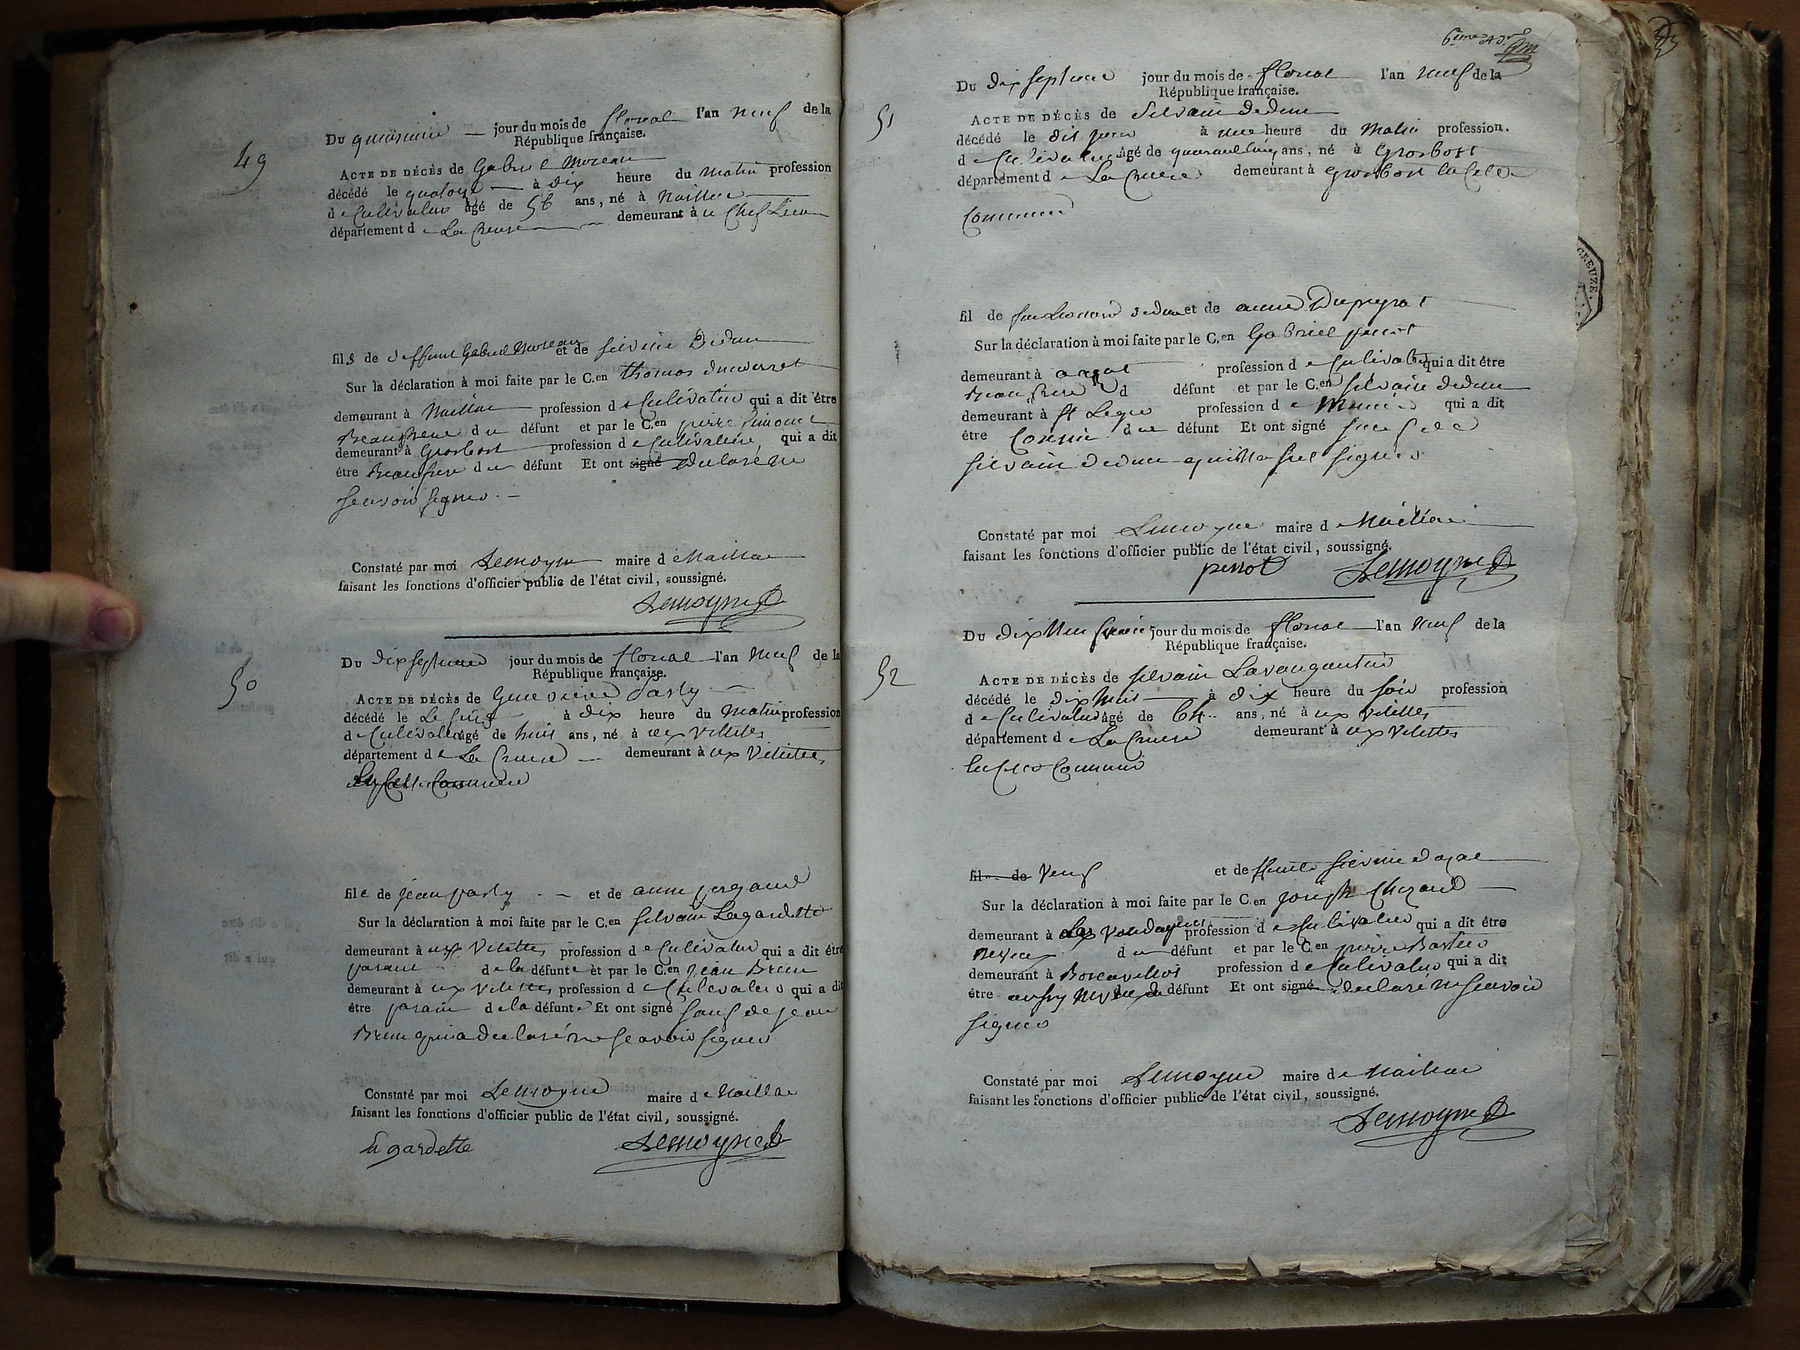 49
Du quinzieme jour du mois de floreal l'an neuf de la
République française.
ACTE DE DÉCÈS de Gabriel Moreau
décédé le quatorze à dix heure du matin profession
de Cultivateur âgé de 56 ans, né à Naillac
département de La Creuse demeurant à u Chef Lieu
fils de deffunt Gabriel Moreau et de silvine Dedun
Sur la déclaration à moi faite par le C.en thomas
demeurant à Naillac profession de Cultivateur qui a dit être
Beaufrere du défunt et par le C.en pierre Simonet
demeurant à Grosbost profession de Cultivateur, qui a dit
être Beaufrere du défunt Et ont signé declaré ne
scavoir signer.
Constaté par moi Lemoyne maire de Naillac
faisant les fonctions d'officier public de l'état civil, soussigné.
Lemoyne
50
Du dix septieme jour du mois de floreal l'an neuf de la
République française.
ACTE DE DÉCÈS de Genevieve
décédé le Le seize à dix heure du Matin profession
de Cultivateur âgé de huit ans, né à ux Vilettes
département de La Creuse demeurant à ux Vilettes
Commune
file de jean et de anne
Sur la déclaration à moi faite par le C.en silvain Lagardette
demeurant à ux Vilettes profession de Cultivateur qui a dit être
parain de la défunte et par le C.en Jean Brun
demeurant à ux Vilettes profession de Cultivateur qui a dit
être parain de la défunte Et ont signé sauf de jean
Brun qui a declaré ne scavoir signer
Constaté par moi Lemoyne maire de Naillac
faisant les fonctions d'officier public de l'état civil, soussigné.
Lagardette Lemoyne
6eme
51
Du dix septieme jour du mois de floreal l'an neuf de la
République française.
ACTE DE DÉCÈS de Silvain Dedun
décédé le dit jour à une heure du Matin profession.
de Cultivateur âgé de quarante cinq ans, né à Grosbost
département de La Creuse demeurant à Grosbost
Commune
fil de feu Leonard dedun et de anne Dupeyrat
Sur la déclaration à moi faite par le C.en Gabriel perrot
demeurant à profession de Cultivateur qui a dit être
Beaufrere du défunt et par le C.en silvain dedun
demeurant à profession de qui a dit
être Cousin du défunt Et ont signé
silvain dedun signer
Constaté par moi Lemoyne maire de Naillac
faisant les fonctions d'officier public de l'état civil, soussigné.
perrot Lemoyne
52
Du dix neuvieme jour du mois de floreal l'an neuf de la
République française.
ACTE DE DÉCÈS de silvain Lavaugautier
décédé le dix huit à dix heure du soir profession
de Cultivateur âgé de 64 ans, né à ux Vilettes
département de La Creuse demeurant à ux Vilettes
Commune
fil de Veuf et de silvine
Sur la déclaration à moi faite par le C.en joseph
demeurant à profession de Cultivateur qui a dit être
neveu du défunt et par le C.en pierre
demeurant à profession de Cultivateur qui a dit
être aussy neveu du défunt Et ont signé declaré ne scavoir
signer
Constaté par moi Lemoyne maire de Naillac
faisant les fonctions d'officier public de l'état civil, soussigné.
Lemoyne
CREUZE.